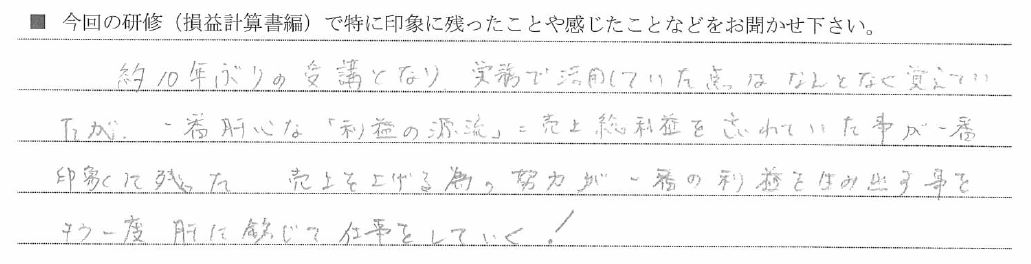 ■ 今回の研修（損益計算書編）で特に印象に残ったことや感じたことなどをお聞かせ下さい。
約10年ぶりの受講となり 実務で活用していた点はなんとなく覚えてい
たが、一番肝心な「利益の源流」=売上総利益を忘れていた事が一番
印象に残った 売上を上げる為の努力が一番の利益を生み出す事を
もう一度 肝に銘じて仕事をしていく!